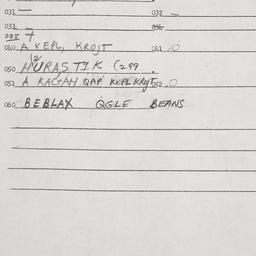 032 — 032 —
033 — 034
035 7
040 A KEPL, KROJT 041 . O
050 HURASTIK (299 .
051 A RAGAH QAP KEPLKROJT 052 . O
060 BEBLAX QGLE BEANS